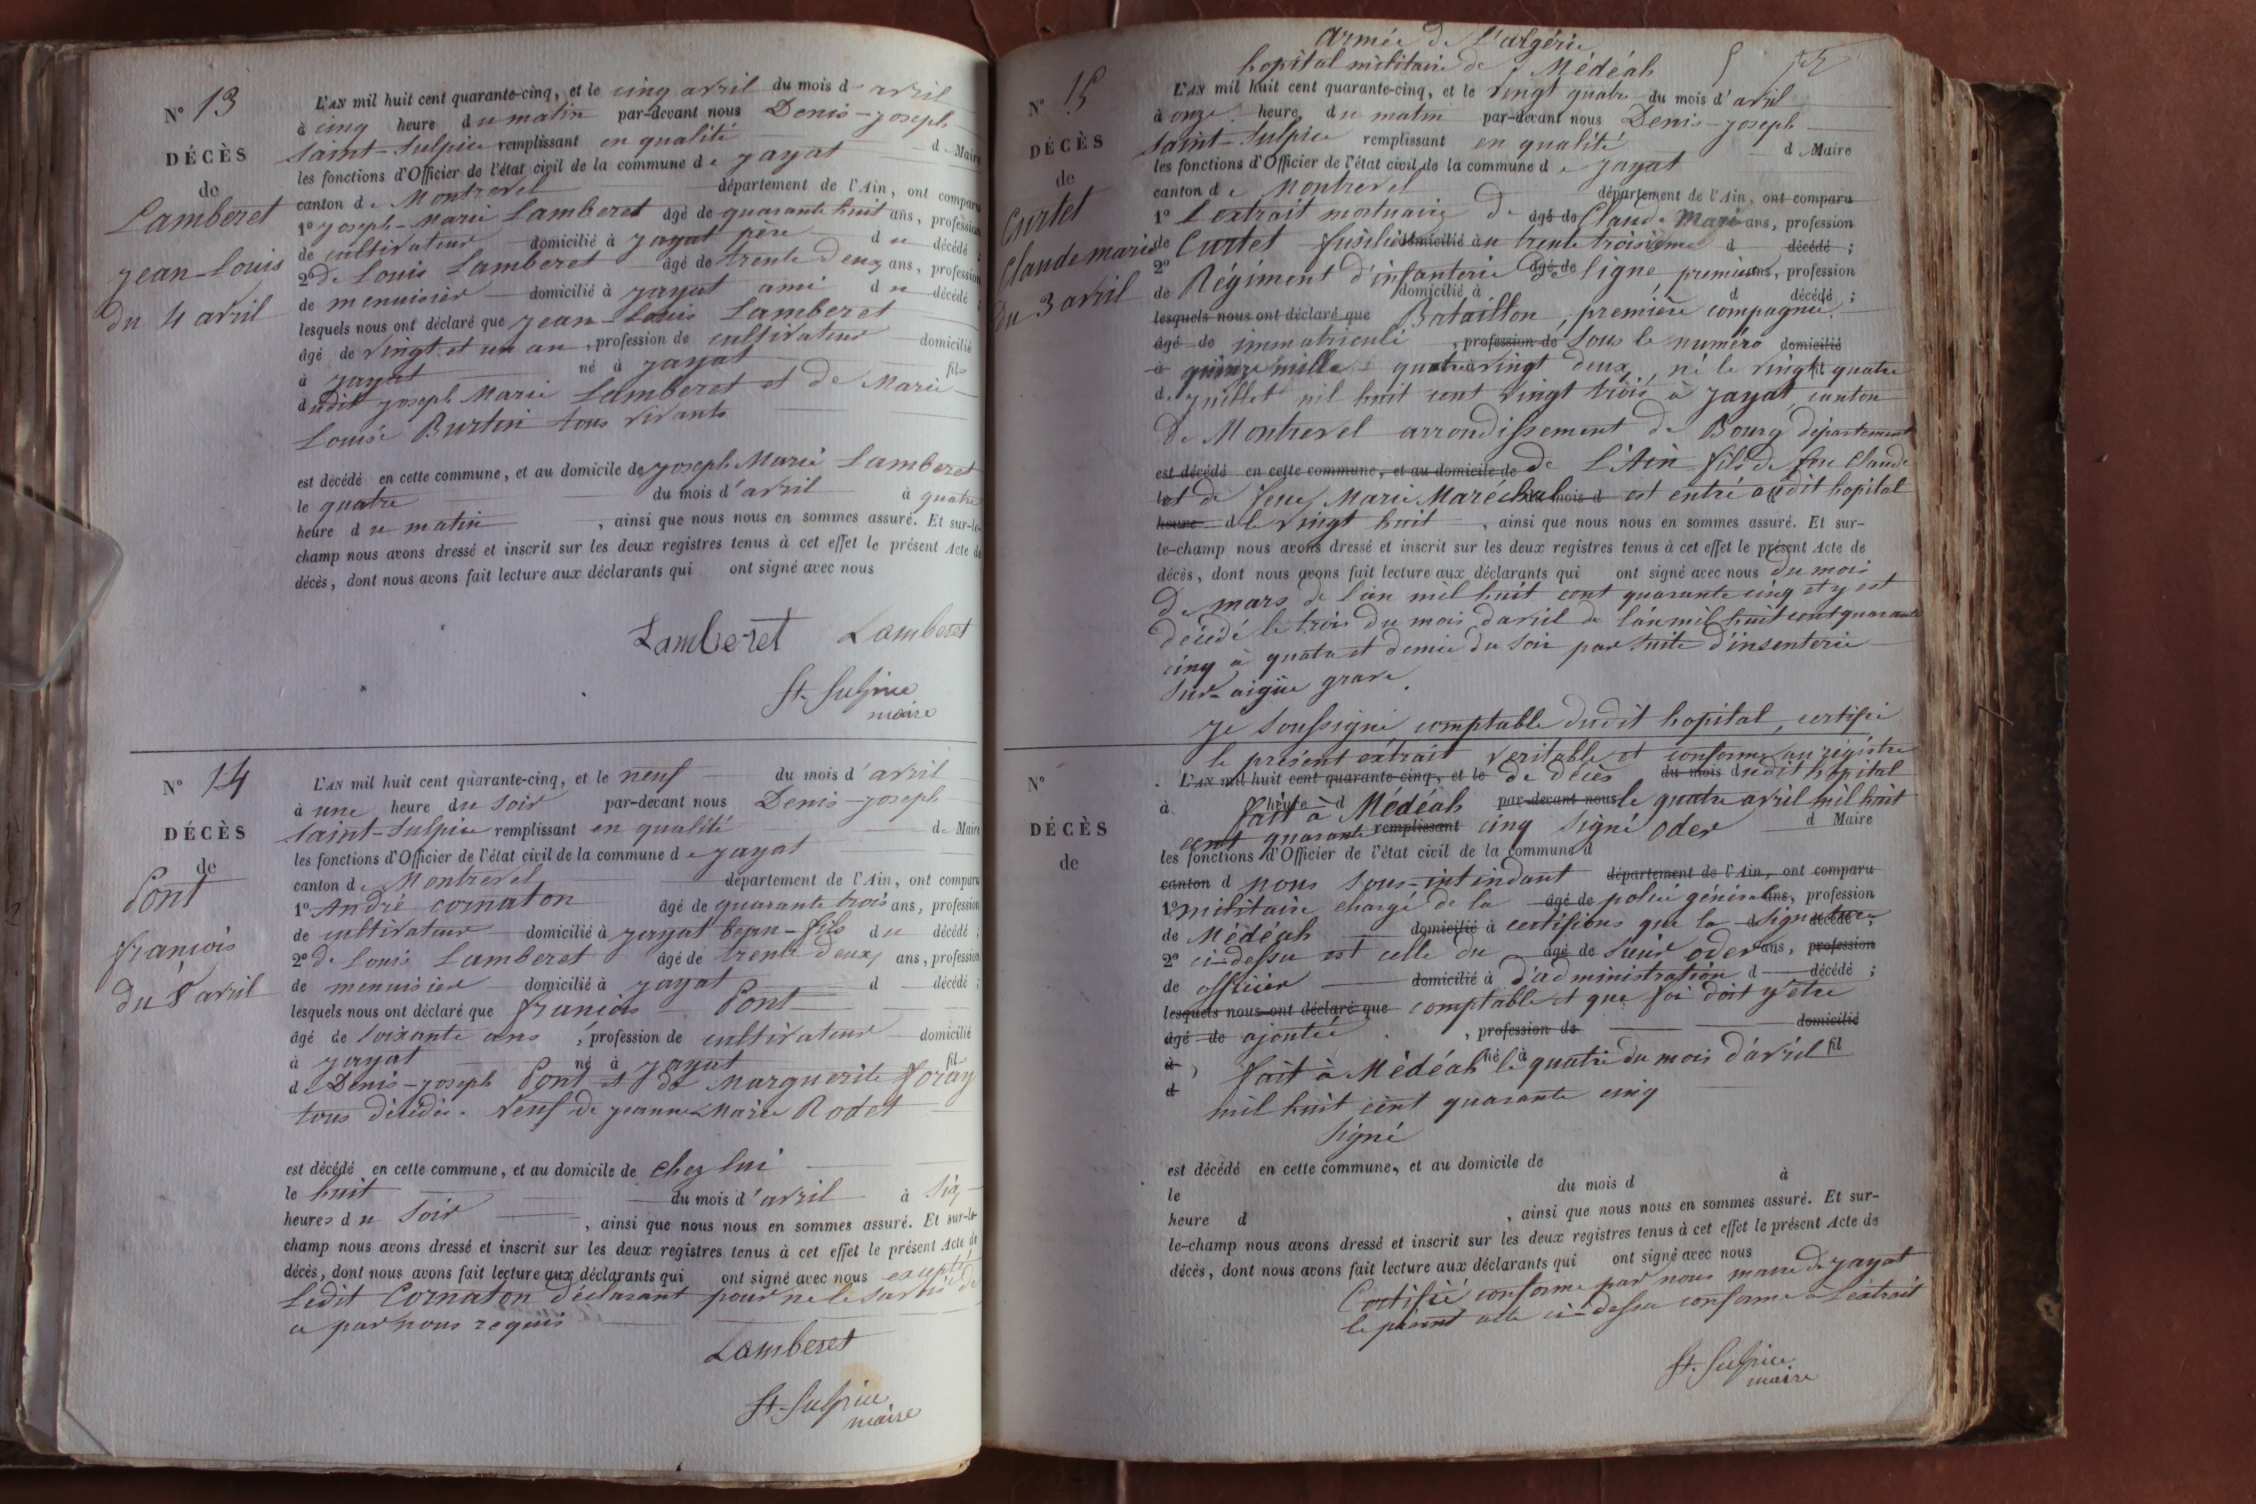 N° 13
DÉCÈS
de
Lamberet
jean-Louis
du 4 avril
L'AN mil huit cent quarante-cinq, et le cinq avril du mois d'avril
à cinq heure du matin par-devant nous Denis-joseph
Saint-Sulpice remplissant en qualité de Maire
les fonctions d'Officier de l'état civil de la commune de jayat
canton de Montrevel département de l'Ain, ont comparu
1° joseph-Marie Lamberet âgé de quarante huit ans, profession
de cultivateur domicilié à jayat père du décédé ;
2° de Louis Lamberet âgé de trente deux ans, profession
de menuisier domicilié à jayat ami du décédé ;
lesquels nous ont déclaré que jean-Louis Lamberet
âgé de vingt et un an, profession de cultivateur domicilié
à jayat né à jayat fils
dudit joseph Marie Lamberet et de Marie
Louise Burtin tous vivants
est décédé en cette commune, et au domicile de joseph Marie Lamberet
le quatre du mois d'avril à quatre
heure du matin, ainsi que nous nous en sommes assuré. Et sur-le-
champ nous avons dressé et inscrit sur les deux registres tenus à cet effet le présent Acte de
décès, dont nous avons fait lecture aux déclarants qui ont signé avec nous
Lamberet Lamberet
St-Sulpice
maire
N° 14
DÉCÈS
de
Pont
françois
du 8 avril
L'AN mil huit cent quarante-cinq, et le neuf du mois d'avril
à une heure du soir par-devant nous Denis-joseph
Saint-Sulpice remplissant en qualité de Maire
les fonctions d'Officier de l'état civil de la commune de jayat
canton de Montrevel département de l'Ain, ont comparu
1° André cornaton âgé de quarante trois ans, profession
de cultivateur domicilié à jayat beau-fils du décédé ;
2° de Louis Lamberet âgé de trente deux ans, profession
de menuisier domicilié à jayat d décédé ;
lesquels nous ont déclaré que françois Pont
âgé de soixante ans, profession de cultivateur domicilié
à jayat né à jayat fils
de Denis-joseph Pont et de Marguerite foray
tous décédés. veuf de jeanne Marie Rodet
est décédé en cette commune, et au domicile de chez lui
le huit du mois d'avril à six
heures du soir, ainsi que nous nous en sommes assuré. Et sur-le-
champ nous avons dressé et inscrit sur les deux registres tenus à cet effet le présent Acte de
décès, dont nous avons fait lecture aux déclarants qui ont signé avec nous excepté
Ledit Cornaton déclarant pour ne le savoir de
ce par nous requis
Lamberet
St-Sulpice
maire
armée de l'algérie
hopital militaire de Médéah
N° 15
DÉCÈS
de
Curtet
Claude marie
du 3 avril
L'AN mil huit cent quarante-cinq, et le vingt quatre du mois d'avril
à onze heure du matin par-devant nous Denis-joseph
Saint-Sulpice remplissant en qualité d Maire
les fonctions d'Officier de l'état civil de la commune de jayat
canton de Montrevel département de l'Ain, ont comparu
1° L'extrait mortuaire de âgé de Claude Marie ans, profession
de Curtet fusilier domicilié à au trente troisième d décédé ;
2° Régiment d'infanterie âgé de de ligne, premier ans, profession
de domicilié à d décédé ;
lesquels nous ont déclaré que Bataillon, première compagnie.
âgé de immatriculé, profession de sous le numéro domicilié
à quinze mille quatre vingt deux, né le vingt quatre
d juillet mil huit cent vingt trois à jayat canton
de Montrevel arrondissement de Bourg département
est décédé en cette commune, et au domicile de de L'Ain fils de feu Claude
le et de feue Marie Maréchal du mois d est entré audit hopital
heure d le vingt huit, ainsi que nous nous en sommes assuré. Et sur-
le-champ nous avons dressé et inscrit sur les deux registres tenus à cet effet le présent Acte de
décès, dont nous avons fait lecture aux déclarants qui ont signé avec nous du mois
de mars de l'an mil huit cent quarante cinq et y est
décédé le trois du mois d'avril de l'an mil huit cent quarante
cinq à quatre et demie du soir par suite d'insenterie
sur-aigüe grave.
je soussigné comptable dudit hopital, certifie
le présent extrait veritable et conforme au régistre
N°
DÉCÈS
de
L'AN mil huit cent quarante-cinq, et le de décès du mois dudit hopital
à heure d fait à Médéah par-devant nous le quatre avril mil huit
cent quarante remplissant cinq signé oder d Maire
les fonctions d'Officier de l'état civil de la commune d
canton d nous sous-intendant département de l'Ain, ont comparu
1° militaire chargé de la âgé de police générale ans, profession
de Médéah domicilié à certifions que la signature d décédé ;
2° ci-dessu est celle du âgé de sieur oder ans, profession
de officier domicilié à d'administration d décédé ;
lesquels nous ont déclaré que comptable et que foi doit y être
âgé de ajoutée, profession de domicilié
à fait à Médéah né à le quatre du mois d'avril fil
d mil huit cent quarante cinq
signé
est décédé en cette commune, et au domicile de
le du mois d à
heure d, ainsi que nous nous en sommes assuré. Et sur-
le-champ nous avons dressé et inscrit sur les deux registres tenus à cet effet le présent Acte de
décès, dont nous avons fait lecture aux déclarants qui ont signé avec nous
Certifié conforme par nous maire de jayat
le présent acte ci-dessu conforme à L'extrait
St-Sulpice
maire